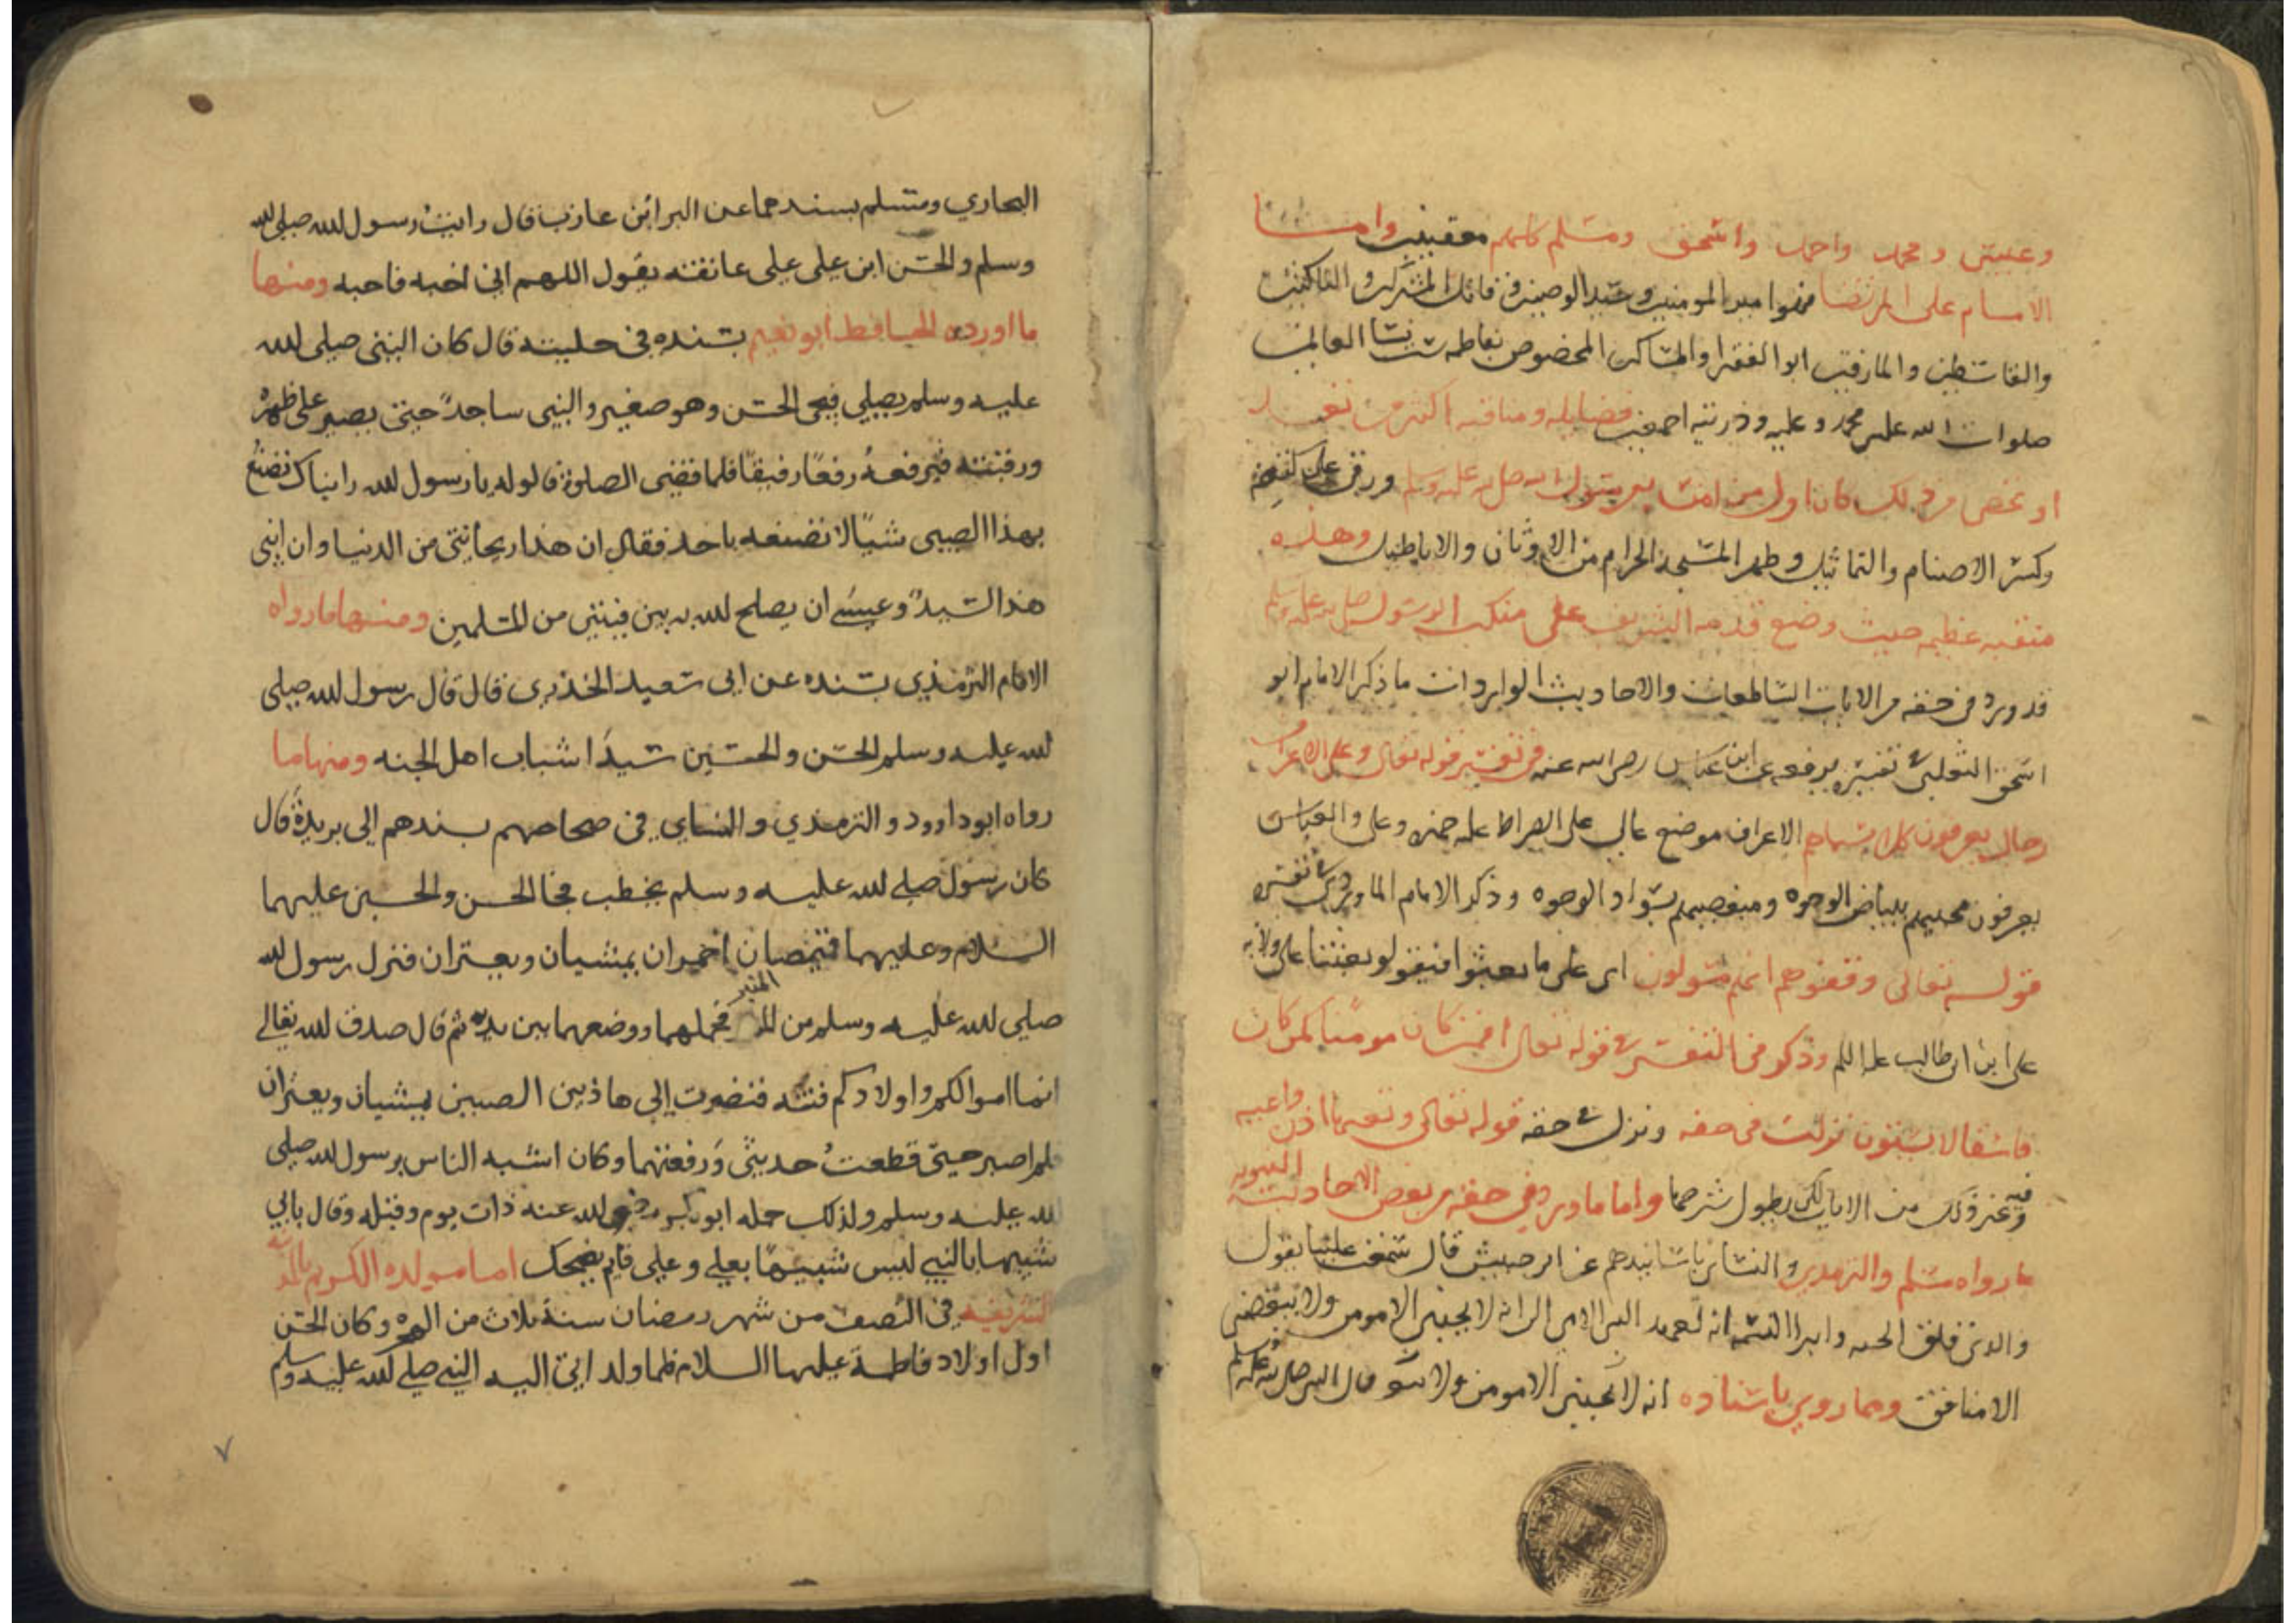 وعيسى ومحمد واحمد واسحق ومسلم كلهم معقبين واما
الامام على المرتضا فهوا مير المومنين وسيد الوصيين وقاتل المشركين والناكثين
والقاسطين والمارقين ابوا الفقرا والمساكين المخصوص بفاطمه ست نسا العالمين
صلوات الله على محمد وعليه وذريته اجمعين فضايله ومناقبه اكثر من تعد
او تحصى فمن ذلك كان اول من امن برسول الله صلى الله عليه وسلم ورقى على كتفه
وكسر الاصنام والتماثيل وطهر المسجد الحرام من الاوثان والاباطيل وهذه
منقبه عظيمه حيث وضع قدمه الشريف على منكب الرسول صلى الله عليه وسلم
قد ورد فى حقه من الايات الساطعات والاحاديث الواردات ما ذكر الامام ابو
اسحق الثعلبى فى تفسيره يرفعه عن ابن عباس رضى الله عنه فى تفسير قوله تعالى وعلى الاعراف
رجال يعرفون كلا بسيماهم الاعراف موضع عال على الصراط عليه حمزه وعلى والعباس
يعرفون محبيهم ببياض الوجوه ومبغضيهم بسواد الوجوه وذكر الامام الماوردى فى تفسيره
قوله تعالى وقفوهم انهم مسولون اى على ما بعثوا فيقولو بعثنا على ولايه
على ابن ابى طالب وذكر فى التفسير فى قوله تعالى افمن كان مومنا كمن كان
فاسقا لا يستون نزلت فى حقه ونزل فى حقه قوله تعالى وتعيها اذن واعيه
وغير ذلك من الايات لكن يطول شرحها واما ما ورد فى حقه من بعض الاحاديث النبويه
ما رواه مسلم والترمدى والنساى باسانيدهم عن زر حبيش قال سمعت عليا يقول
والدى فلق الحبه وابرا النسمه انه لعهد النبى الامى الى انه لا يحبنى الا مومن ولا يبغضنى
الا منافق ومما روى باسناده انه لا يحبنى الا مومن ولا
البخاري ومسلم بسندهما عن البرا ابن عازب قال رايت رسول لله صلى لله
وسلم والحسن ابن على على عاتقته يقول اللهم انى احبه فاحبه ومنها
ما اورده الحافظ ابو نعيم بسنده فى حليته قال كان النبى صلى لله
عليه وسلم يصلي فيجى الحسن وهو صغير والنبى ساجدً حتى يصير على ظهره
ورقبته فيرفعهُ رفعًا رفيقًا فلما قضى الصلوة قالو له يا رسول لله رايناك تصنعُ
بهذا الصبى شيًا لا تصنعه باحد فقال ان هذا ريحانتى من الدنيا وان ابنى
هذا السيدً وعسى ان يصلح لله به بين فيتين من المسلمين ومنها ما رواه
الامام الترمذي بسنده عن ابى سعيد الخدرى قال قال رسول لله صلى
لله عليه وسلم الحسن والحسين سيدَا شباب اهل الجنه ومنها ما
رواه ابو داوود والترمذي والنساي فى صحاحهم بسندهم الى بريدة قال
كان رسول صلى لله عليه وسلم يخطب فجا الحسن والحسين عليهما
السلام وعليهما قميصان احمران يمشيان ويعتران فنزل رسول لله
صلى لله عليه وسلم من المنبر فحملهما ووضعهما بين يديه ثم قال صدق لله تعالى
انما اموالكم واولادكم فتنه فنضرت الى هاذين الصبيين يمشيان ويعثران
فلم اصبر حتى قطعتُ حديثى ورفعتهما وكان اشبه الناس برسول لله صلى
لله عليه وسلم ولذلك حمله ابو بكر رضى لله عنه ذات يوم وقبله وقال بابي
شبيها بالنبي ليس شبيهًا بعلي وعلي قايم يضحك اما مولده الكريم بالمدينه
الشريفه فى النصف من شهر رمضان سنة ثلاث من الهجره وكان الحسن
اول اولاد فاطمة عليها السلام فلما ولد اتى اليه النبي صلى لله عليه وسلم
٧